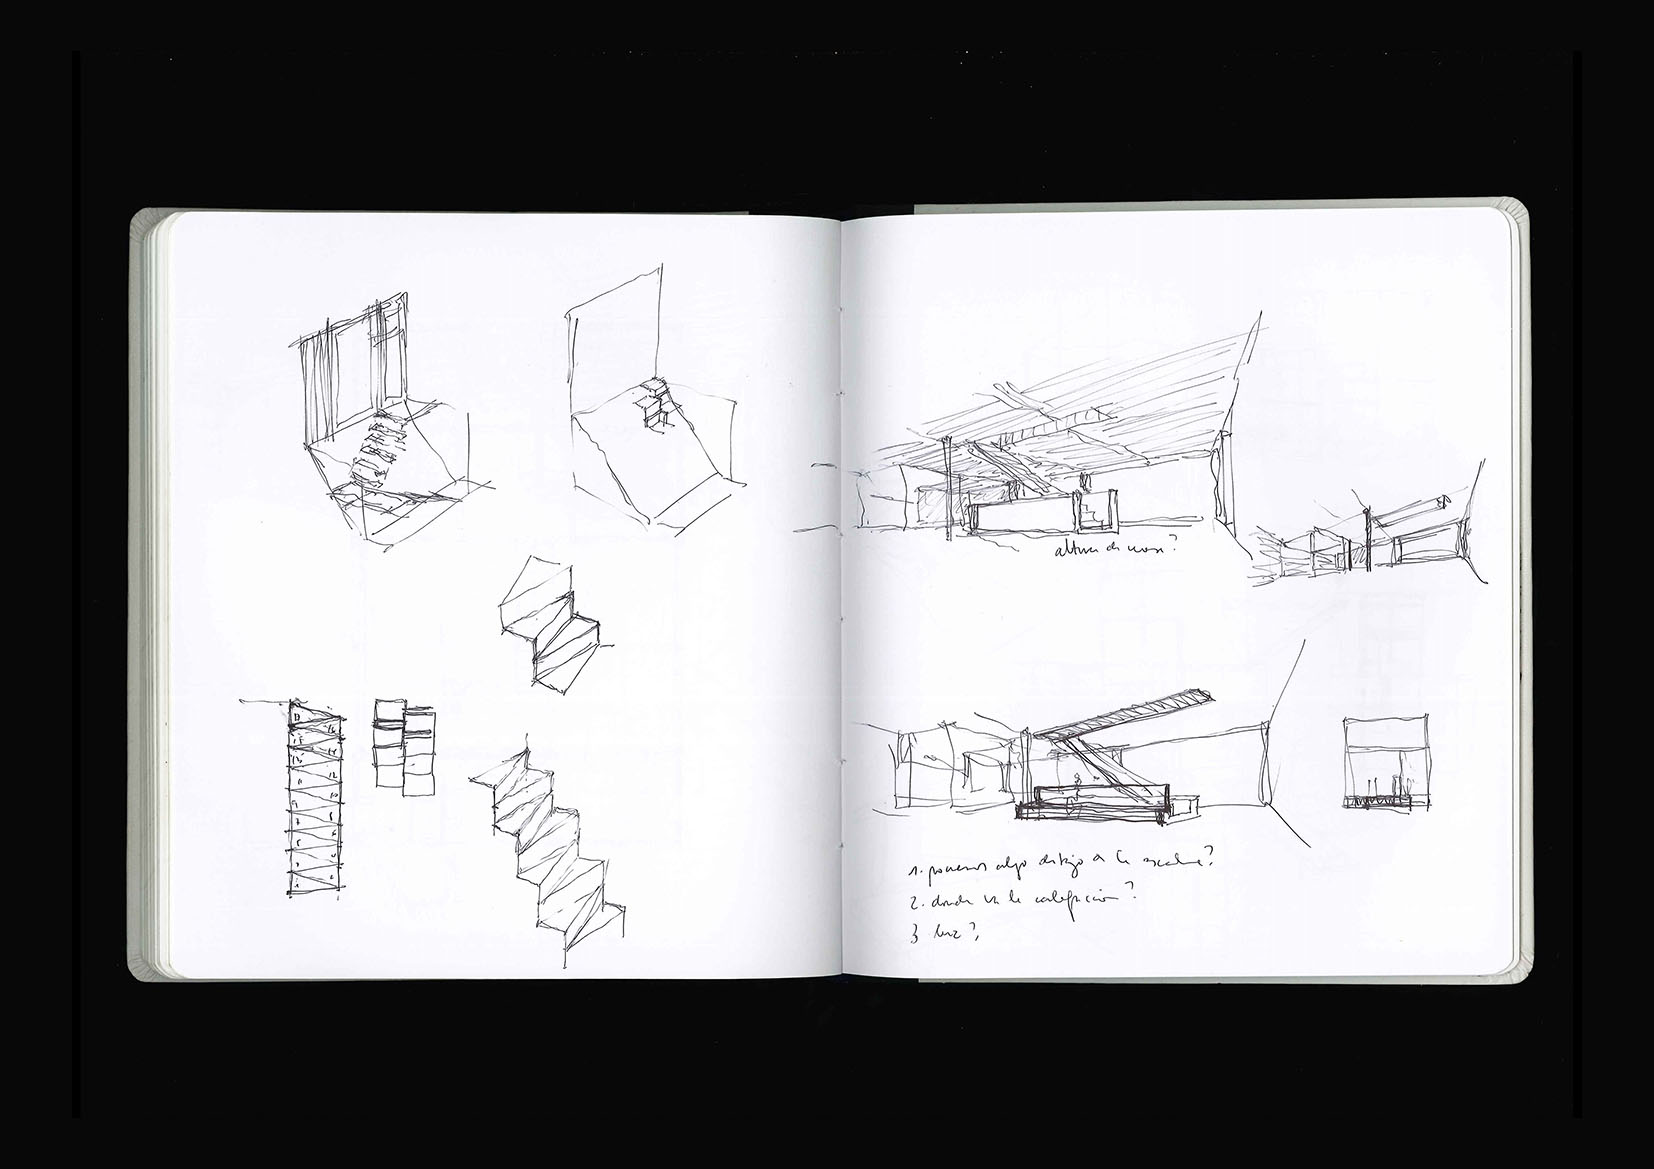 altura de mesa?
1. ponemos algo debajo de la escalera?
2. donde va la calefaccion?
3. luz?